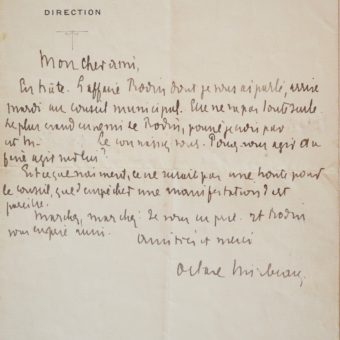 DIRECTION
Mon cher ami,
En hâte. L'affaire Rodin dont je vous ai parlé, arrive
mardi au conseil municipal. Elle ne va pas toute seule
Le plus grand ennemi de Rodin, par
est M. Le connaissez vous. Pouvez vous agir ou
faire agir sur lui?
Est ce que vraiment, ce ne serait pas une honte pour
le conseil, que d'empêcher une manifestation d'art
pareille.
Marchez, marchez. Je vous en prie. et Rodin
vous en prie aussi.
Amitiés et merci
Octave Mirbeau